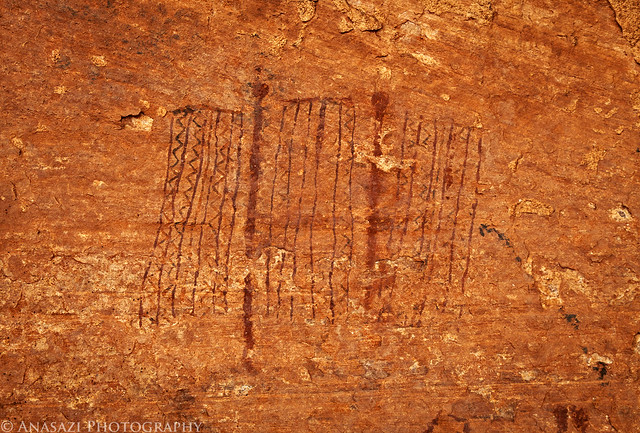 © Anasazi Photography